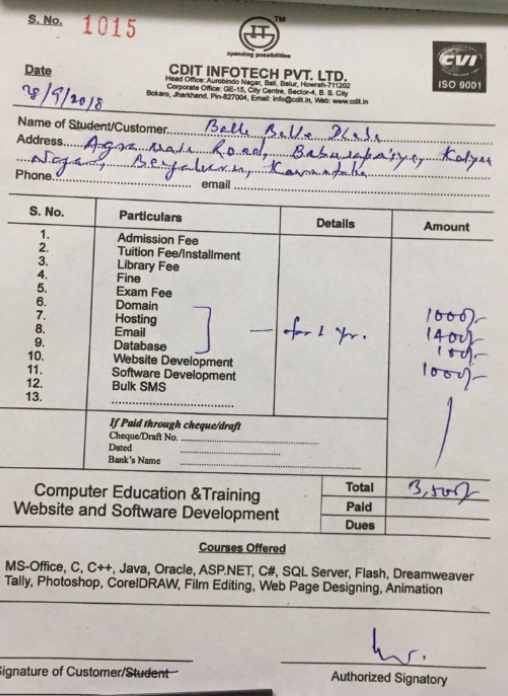 S. No. 1015
TM
spending possibilities
CVI
ISO 9001
CDIT INFOTECH PVT. LTD.
Head Office: Aurobindo Nagar, Bali, Belur, Howrah-711202
Corporate Office: GE-15, City Centre, Sector-4, B. S. City
Bokaro, Jharkhand, Pin-827004, Email: info@cdit.in, Web: www.cdit.in
Date
28/9/2018
Name of Student/Customer Balle Balle Dhaba
Address Agra Road,
Nagar, Bengaluru, Karnataka
Phone email
S. No. Particulars Details Amount
1. Admission Fee
2. Tuition Fee/Installment
3. Library Fee
4. Fine
5. Exam Fee
6. Domain 1000/-
7. Hosting 1400/-
8. Email for 1 yr. 100/-
9. Database 1000/-
10. Website Development
11. Software Development
12. Bulk SMS
13.
If Paid through cheque/draft
Cheque/Draft No.
Dated
Bank's Name
Computer Education &Training
Website and Software Development
Total 3,500/-
Paid
Dues
Courses Offered
MS-Office, C, C++, Java, Oracle, ASP.NET, C#, SQL Server, Flash, Dreamweaver
Tally, Photoshop, CorelDRAW, Film Editing, Web Page Designing, Animation
Signature of Customer/Student
Authorized Signatory